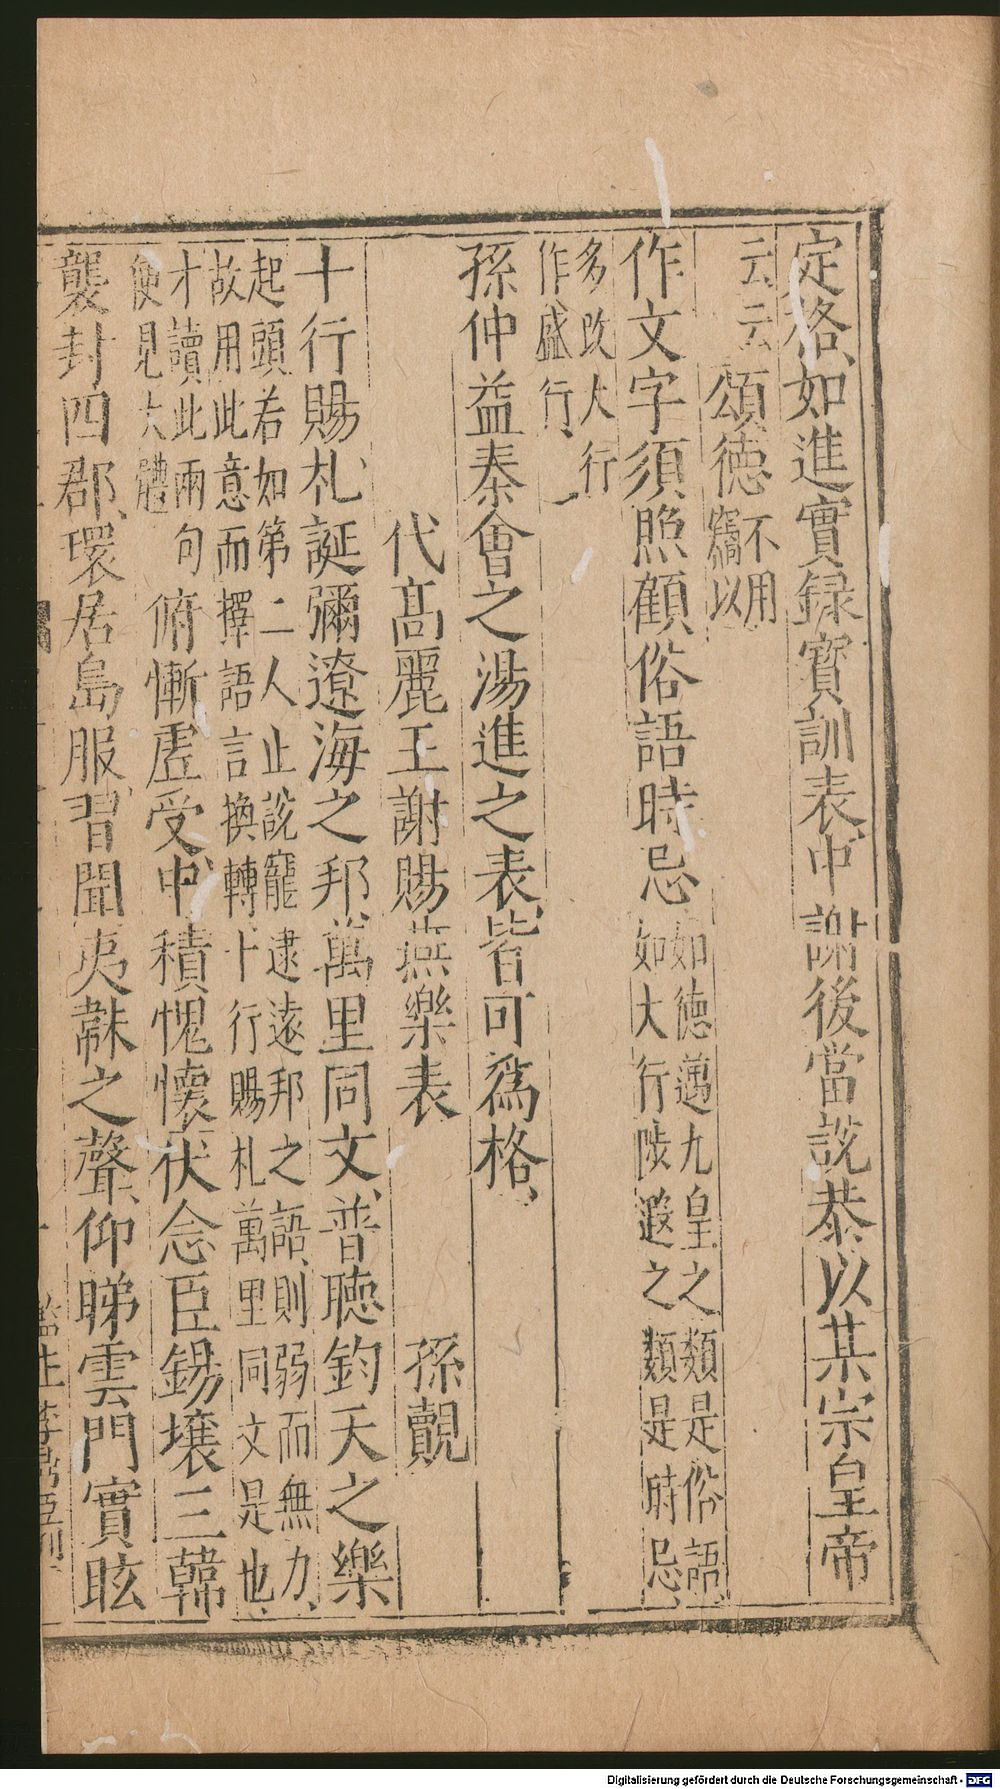 定格、如進實録寶訓表、中謝後當説恭以某宗皇帝
云云頌德不用竊以
作文字須照顧俗語時忌如德邁九皇之類是俗語、如大行陟遐之類是時忌、
多改大行作盛行、
孫仲益秦會之湯進之表、皆可為格、
代髙麗王謝賜燕樂表 孫覿
十行賜札、誕彌遼海之邦、萬里同文、普聽鈞天之樂
起頭若如第二人止説寵逮遠邦之語、則弱而無力、故用此意而擇語言換轉、十行賜札萬里同文是也、
才讀此兩句便見大體俯慚虚受、中積愧懷、伏念臣錫壤三韓
襲封四郡、環居島服、習聞夷靺之聲、仰睇雲門、實眩
Digitalisierung gefördert durch die Deutsche Forschungsgemeinschaft - DFG